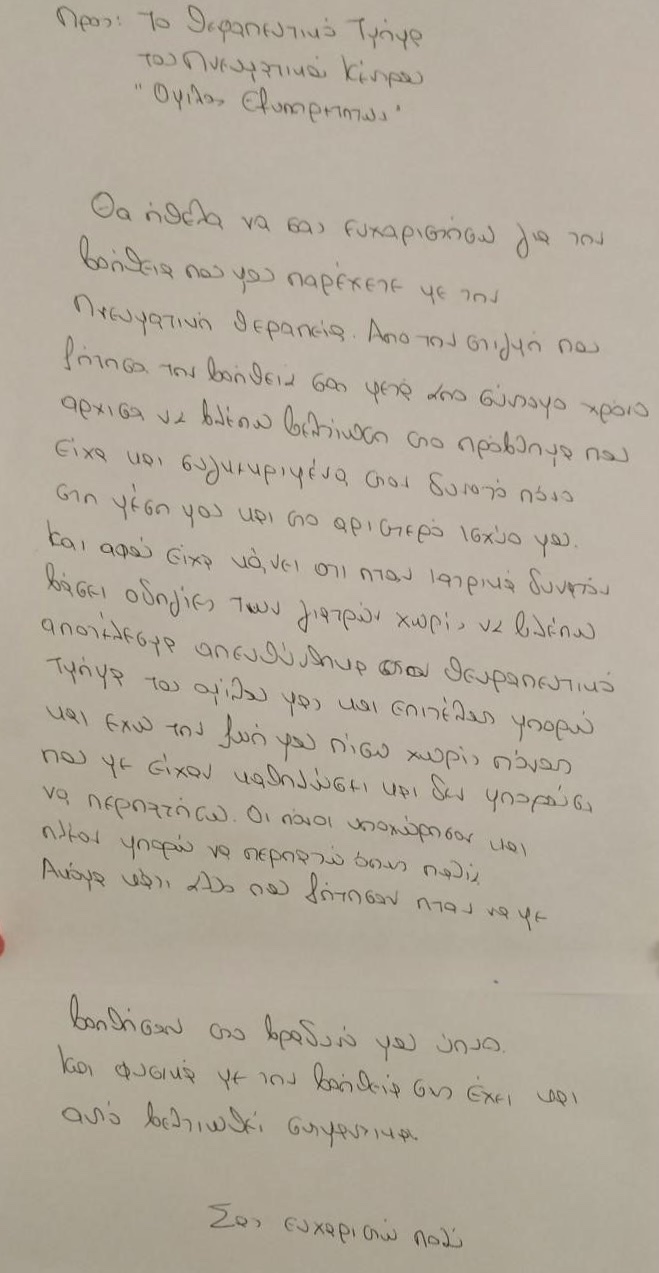 Προς: Το Θεραπευτικό Τμήμα
του Πνευματικού Κέντρου
"Ομιλος Εξυπηρετητων"
Θα ήθελα να σας ευχαριστήσω για την
βοήθεια που μου παρέχετε με την
Πνευματική θεραπεία. Απο την στιγμή που
ζήτησα την βοήθεια σας μετά απο σύντομο χρόνο
αρχισα να βλέπω βελτίωση στο πρόβλημα που
είχα και συγκεκριμένα στον δυνατό πόνο
στη μέση μου και στο αριστερό ισχύο μου.
Και αφού είχα κάνει οτι ηταν ιατρικά δυνατόν
βάσει οδηγίες των γιατρών χωρίς να βλέπω
αποτέλεσμα απευθύνθηκα στον θευραπευτικό
Τμήμα του ομίλου μας και επιτέλους μπορώ
και εχω την ζωή μου πίσω χωρίς πόνους
που με είχαν καθηλώσει και δεν μπορούσα
να περπατήσω. Οι πόνοι υποχώρησαν και
πλέον μπορώ να περπατώ όπως παλιά
Ακόμα κάτι άλλο που ζήτησαν ηταν να με
βοηθήσουν στο βραδυνό μου ύπνο.
Και φυσικά με την βοήθεια σας έχει και
αυτό βελτιωθεί σημαντικα.
Σας ευχαριστώ πολύ